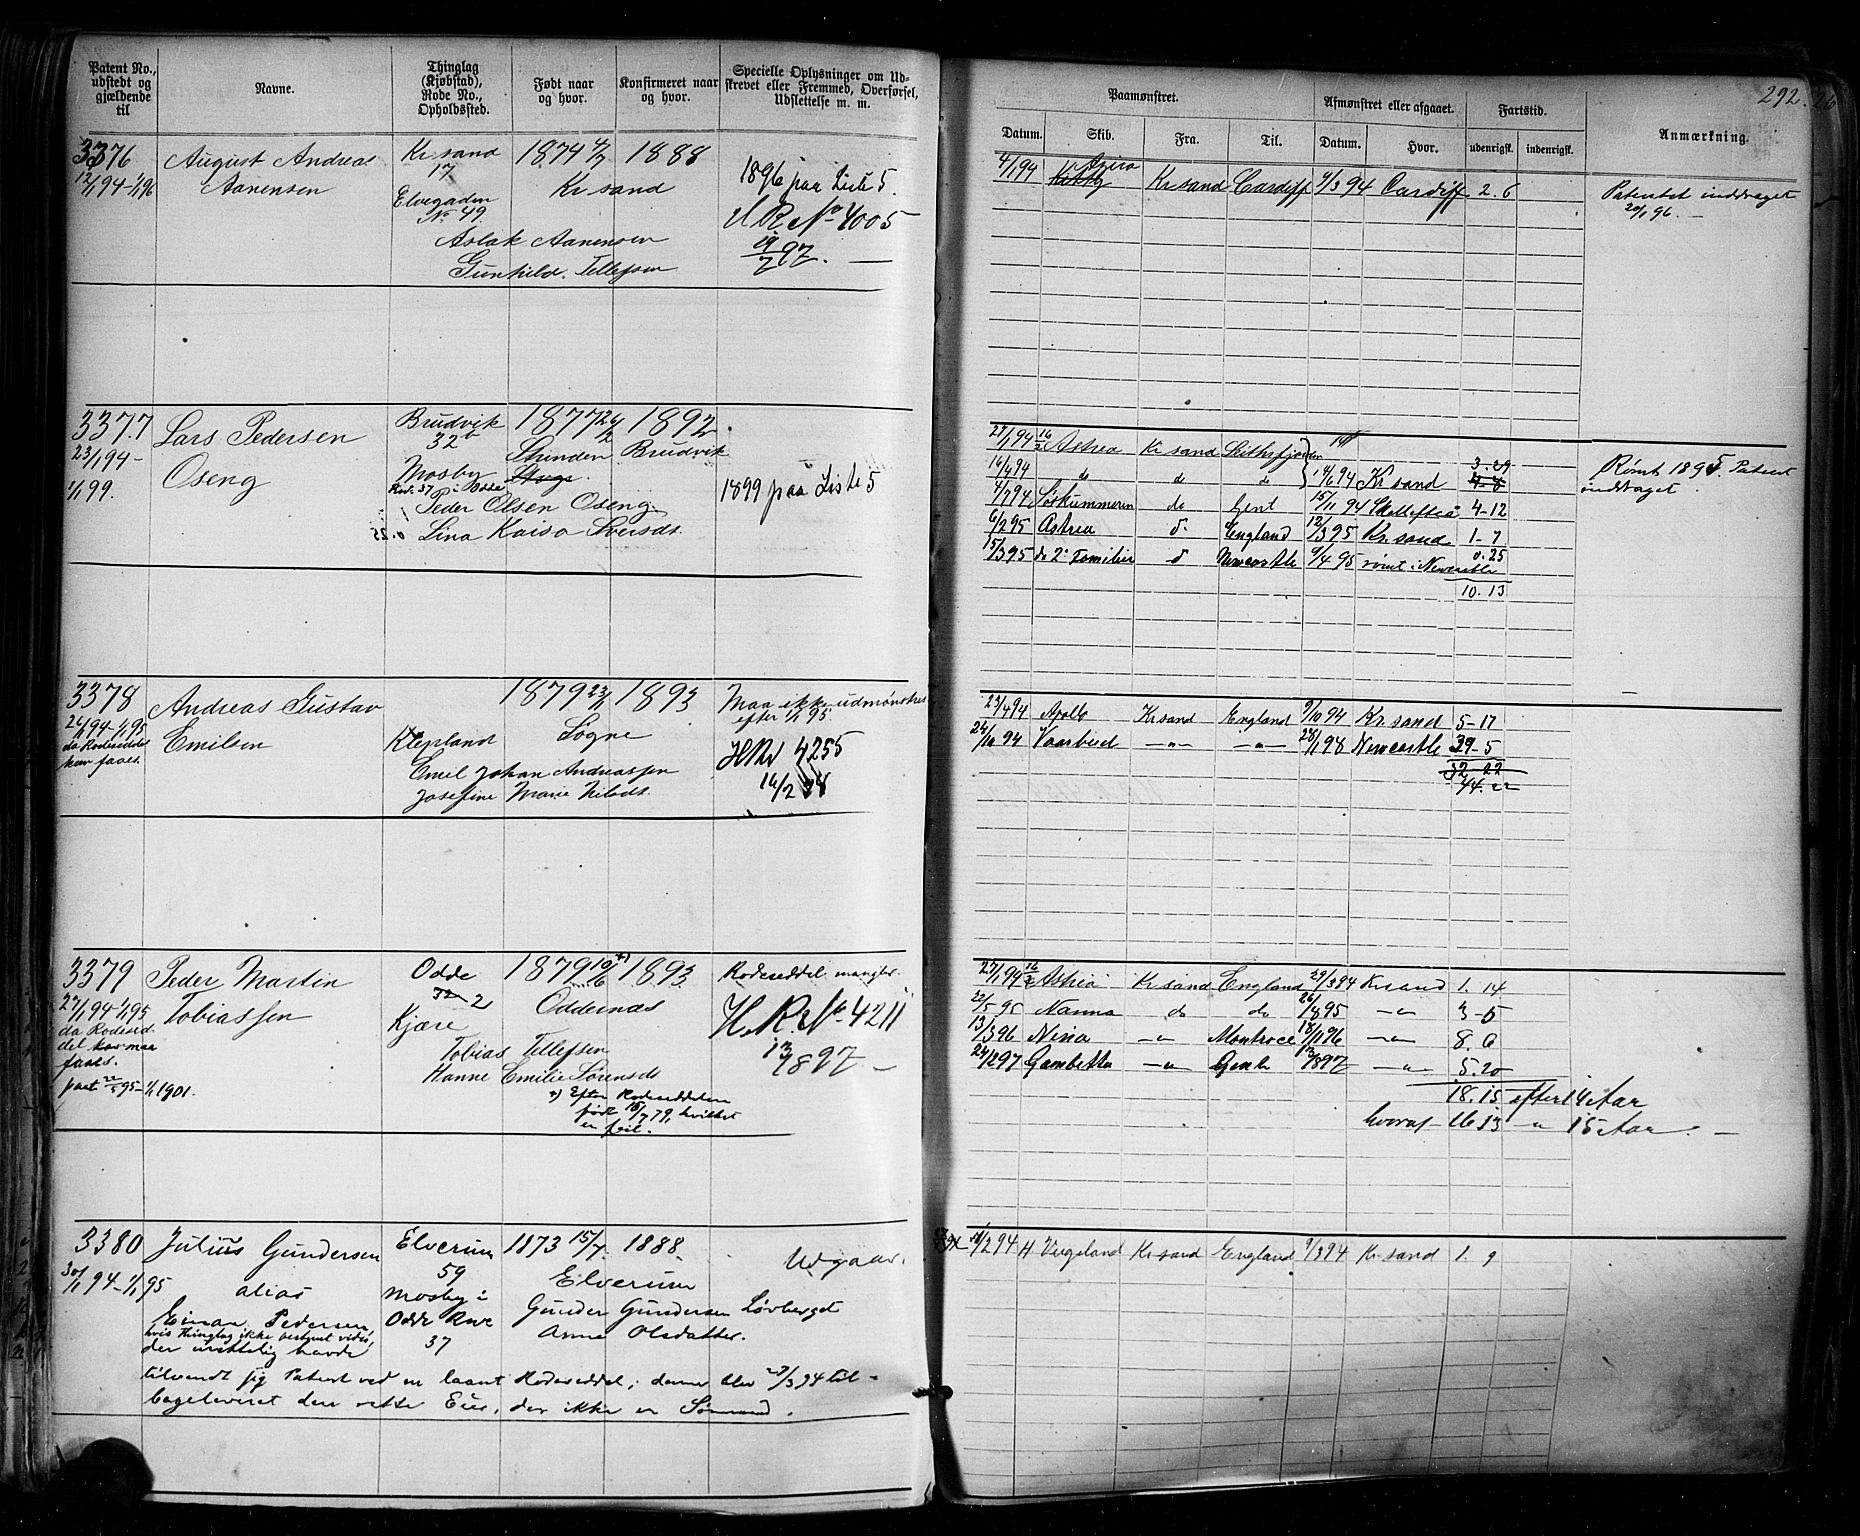 Patent No., udstedt og gjældende til
Navne.
Thinglag (Kjøbstad), Rode No., Opholdssted.
Født naar og hvor.
Konfirmeret naar og hvor.
Specielle Oplysninger om Udskrevet eller Fremmed, Overførsel, Udslettelse m. m.
3376
12/1 94-1/1 96
August Andreas
Aanensen
Kr sand
17
Elvegaden
No 49
1874 4/7 1888
Kr sand
Aslak Aanensen
Gunhild Tellefsen
1896 paa Liste 5.
H R No 4005
19/7 97. —
3377
23/1 94-
1/1 99.
Lars Pedersen
Oseng
Brudvik
32 b
Mosby
Rod. 37 i Odde
1877 24/2 1892.
Brudvik
Peder Olsen Oseng
Lina Kaisa Iversdt.
1899 paa Liste 5
3378
26/1 94-1/1 95
da Rodeseddel
kun faaes.
Andreas Gustav
Emilsen
Klepland
1879 23/2 1893
Sogne
Emil Johan Andreassen
Josefine Marie Nilsdt.
Maa ikke udmønstres
efter 1/1 95.
H R No 4255
16/2 98
3379
27/1 94-1/1 95
da Rodesed-
del kor maa
faaes.
paat 22/5 95-1/1 1901.
Peder Martin
Tobiassen
Odde
32 2
Kjære
1879 10/6 +) 1893
Oddernæs
Tobias Tellefsen
Hanne Emilie Sørensdt
+) Efter Rodeseddelen
født 15/7 79, hvilket
er feil.
Rodeseddel mangler.
H. R. No. 4211
13/8 97 —
3380
30/1 94-1/1 95
Julius Gundersen
alias
Einar Pedersen
hvis Thinglag ikke bestemt vides,
der urettelig havde
Elverum
59
Mosby i
Odde Rode
37
1873 15/7 1888.
Elverum
Gunder Gundersen Løvberget
Anne Olsdatter.
Udgaar.
tilvendt sig Patent ved en laant Rodeseddel; denne blev 27/3 94 til-
bageleveret den rette Eier, der ikke er Sømand.
292.
Paamønstret.
Afmønstret eller afgaaet.
Fartstid.
Anmærkning.
Datum.
Skib.
Fra.
Til.
Datum.
Hvor.
udenrigsk.
indenrigsk.
4/1 94 Kr sand Cardiff 9/3 94 Cardiff 2. 6
Patentet inddraget
20/1 96. —
27/1 94 16/2 Astrea Kr sand
3. 29
14/4 94 do do do 14/6 94 Kr sand 4-8
4/7 94 Søskummeren do Gent 15/11 94 Skellefteå 4-12
6/2 95 Astrea d- England 12/3 95 Kr. sand 1-7
15/3 95 de 2de Familier d Newcastle 9/4 95 rømt i Newcastle 0. 25
10. 13
Rømt 1895. Patent
inddraget.
23/4 94 Apollo Kr sand England 9/10 94 Kr. sand 5-17
24/10 94 Vaarbud —"— —"— 28/1 98 Newcastle 39-5
32 22
44. 22
27/1 94 16/2 Astrea Kr sand England 29/3 94 Kr sand 1. 14
22/5 95 Nanna do do 26/8 95 —"— 3-5
13/3 96 Nina —"— Montrose 18/11 96 —"— 8. 6
24/2 97 Gambetta —"— Genk 13/8 97 —"— 5. 20
18. 15 efter 14 Aar
hvoraf 16 13 —"— 15 Aar. —
/2 94 H Vergeland Kr sand England 9/3 94 Kr sand 1. 9